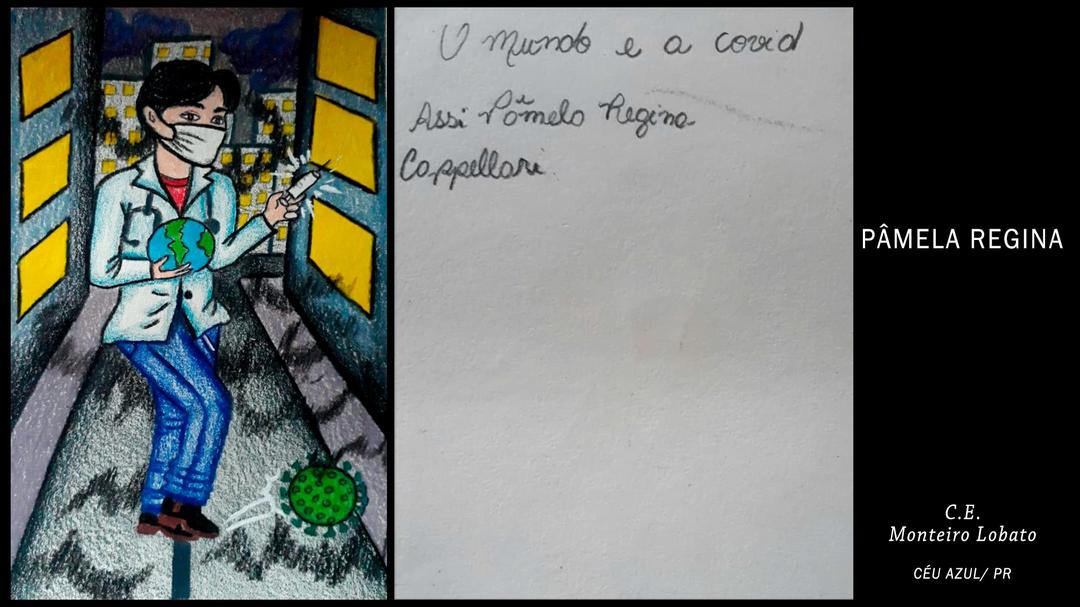 O mundo e a covid
Assi Pâmela Regina
Cappellari
PÂMELA REGINA
C.E.
Monteiro Lobato
CÉU AZUL/ PR